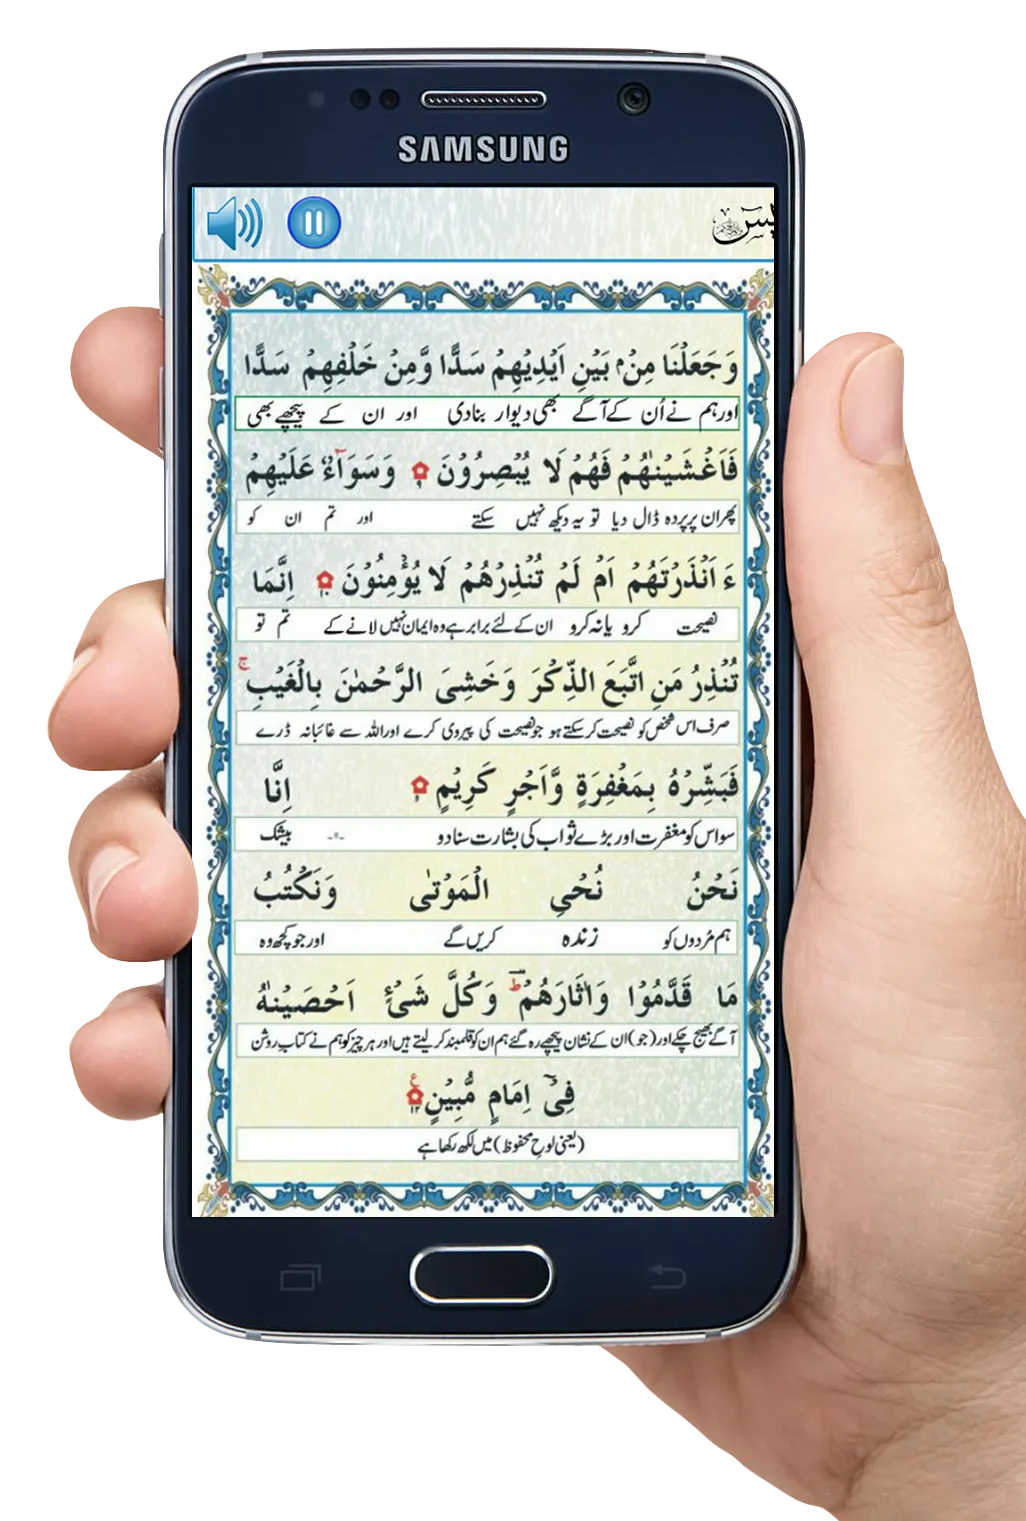 SAMSUNG
يٰسٓ
وَجَعَلْنَا مِنْۢ بَيْنِ اَيْدِيْهِمْ سَدًّا وَّمِنْ خَلْفِهِمْ سَدًّا
اور ہم نے اُن کے آگے بھی دیوار بنا دی اور ان کے پیچھے بھی
فَاَغْشَيْنٰهُمْ فَهُمْ لَا يُبْصِرُوْنَ ۹ وَسَوَآءٌ عَلَيْهِمْ
پھر ان پر پردہ ڈال دیا تو یہ دیکھ نہیں سکتے اور تم ان کو
ءَاَنْذَرْتَهُمْ اَمْ لَمْ تُنْذِرْهُمْ لَا يُؤْمِنُوْنَ ۱۰ اِنَّمَا
نصیحت کرو یا نہ کرو ان کے لئے برابر ہے وہ ایمان نہیں لانے کے تم تو
تُنْذِرُ مَنِ اتَّبَعَ الذِّكْرَ وَخَشِىَ الرَّحْمٰنَ بِالْغَيْبِ ۚ
صرف اس شخص کو نصیحت کر سکتے ہو جو نصیحت کی پیروی کرے اور اللہ سے غائبانہ ڈرے
فَبَشِّرْهُ بِمَغْفِرَةٍ وَّاَجْرٍ كَرِيْمٍ ۱۱ اِنَّا
سو اس کو مغفرت اور بڑے ثواب کی بشارت سنا دو بیشک
نَحْنُ نُحْىِ الْمَوْتٰى وَنَكْتُبُ
ہم مُردوں کو زندہ کریں گے اور جو کچھ وہ
مَا قَدَّمُوْا وَاٰثَارَهُمْ ؕ وَكُلَّ شَىْءٍ اَحْصَيْنٰهُ
آگے بھیج چکے اور (جو) ان کے نشان پیچھے رہ گئے ہم ان کو قلمبند کر لیتے ہیں اور ہر چیز کو ہم نے کتاب روشن
فِىْٓ اِمَامٍ مُّبِيْنٍ ۱۲ ع
(یعنی لوح محفوظ) میں لکھ رکھا ہے